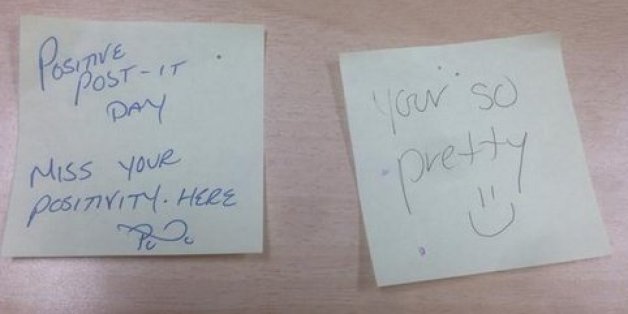 POSITIVE
POST-IT
DAY
MISS YOUR
POSITIVITY. HERE
your so
pretty